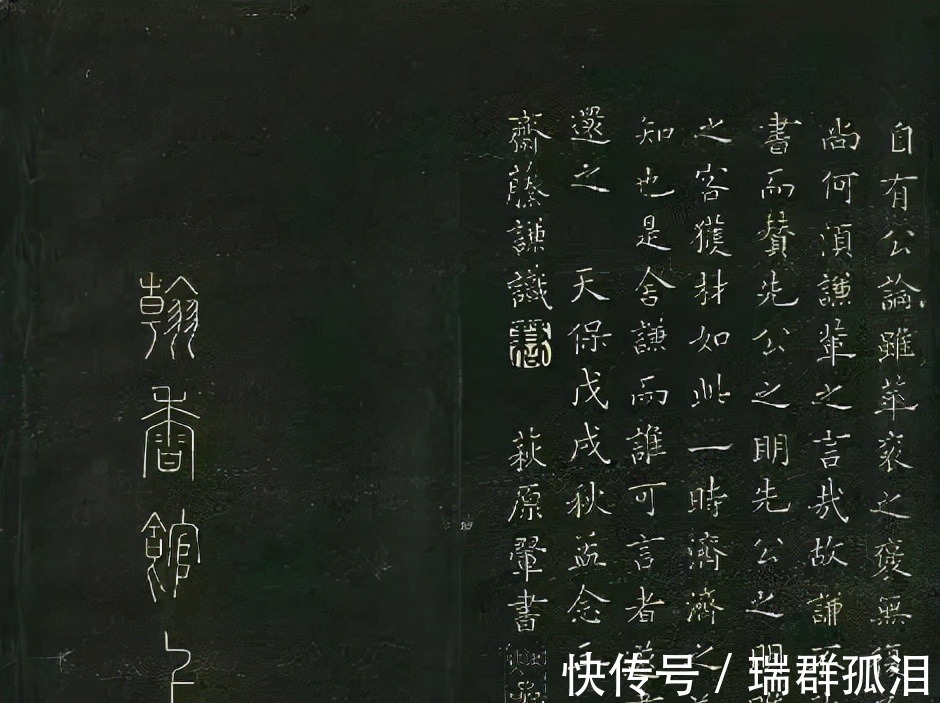 自有公論雖華袞之褒無
尚何須謙輩之言哉故謙
書而贊先公之明先公之明
之容獲材如此一時濟濟之
知也是舍謙而誰可言者
還之　天保戊戌秋孟念
齋藤謙識　萩原翬書
翰香館
快传号 / 瑞群孤泪